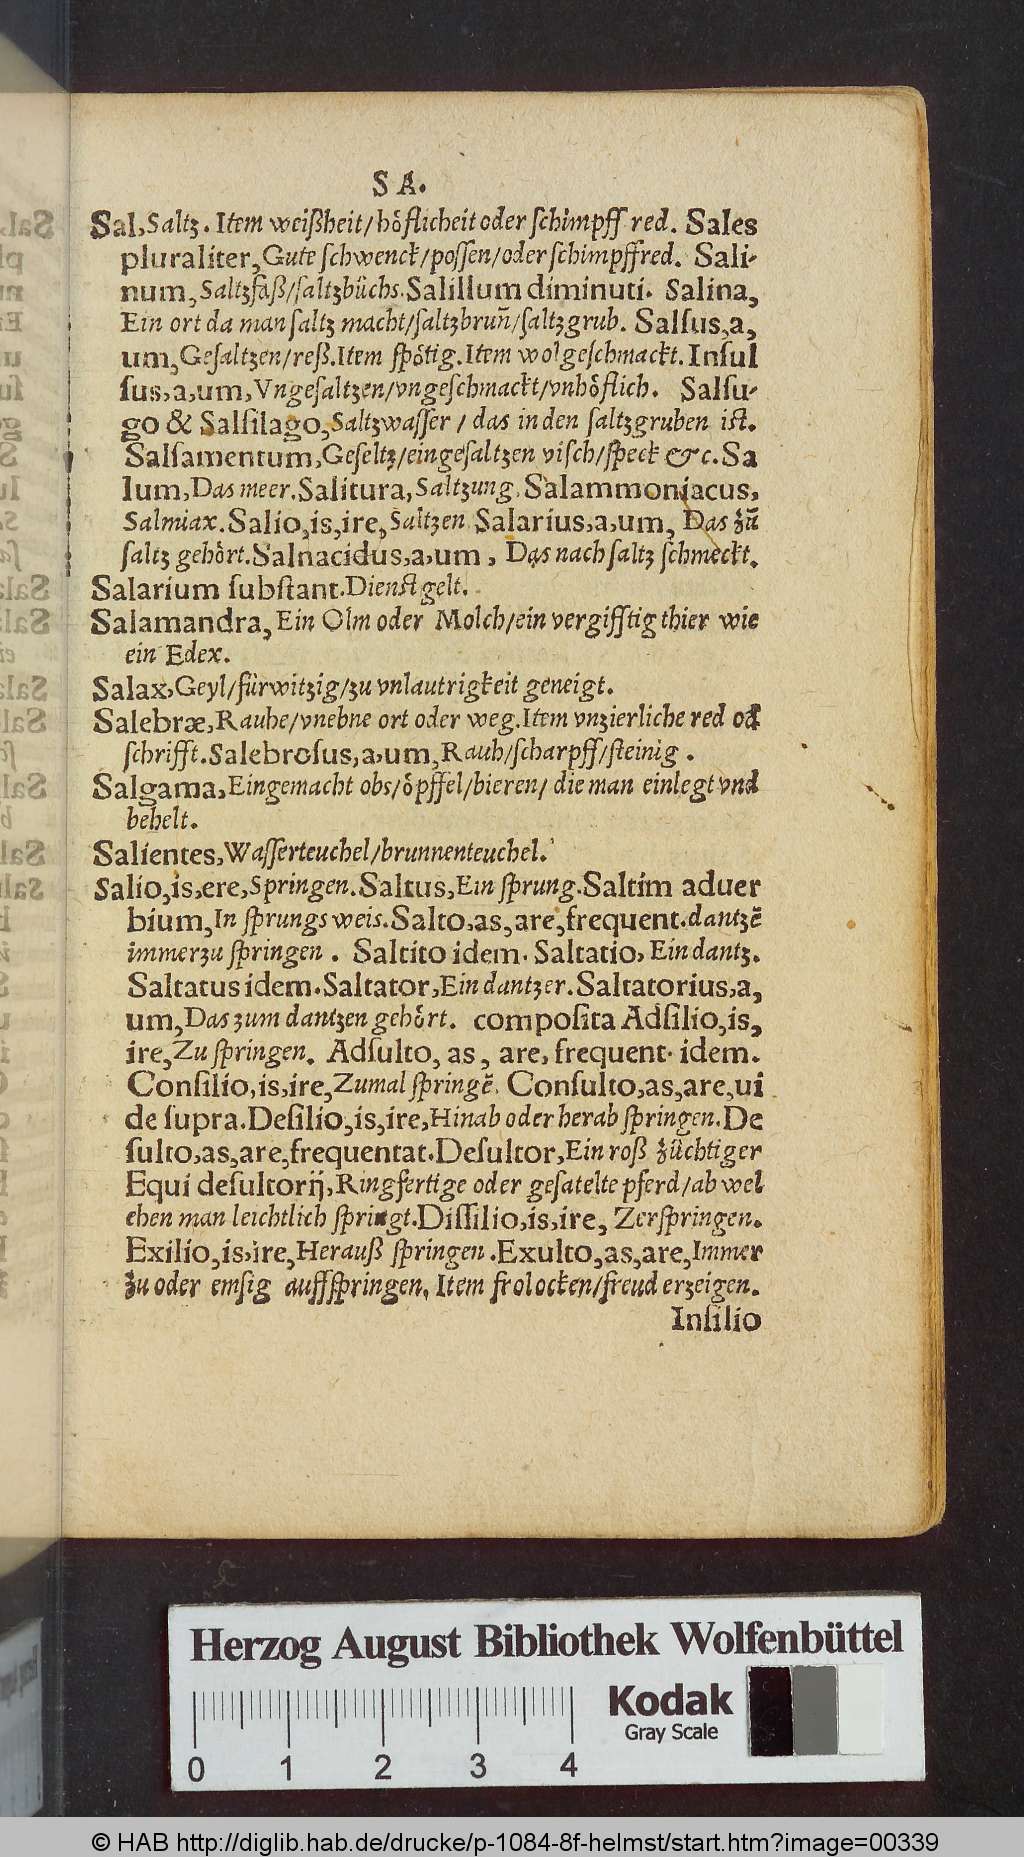 S A.
Sal, Saltz. Item weißheit/höflicheit oder ſchimpff red. Sales
pluraliter, Gute ſchwenck/poſſen/oder ſchimpffred. Sali-
num, Saltzfaß/ſaltzbüchs. Salillum diminuti. Salina,
Ein ort da man ſaltz macht/ſaltzbrun̄/ſaltzgrub. Salſus, a,
um, Geſaltzen/reß. Item ſpötig. Item wolgeſchmackt. Inſul
ſus, a, um, Vngeſaltzen/vngeſchmackt/vnhöflich. Salſu-
go & Salſilago, Saltzwaſſer / das in den ſaltzgruben iſt.
Salſamentum, Geſeltz/eingeſaltzen viſch/ſpeck &c. Sa
lum, Das meer. Salitura, Saltzung. Salammoniacus,
Salmiax. Salio, is, ire, Saltzen. Salarius, a, um, Das zū
ſaltz gehört. Salnacidus, a, um, Das nach ſaltz ſchmeckt.
Salarium ſubſtant. Dienſt gelt.
Salamandra, Ein Olm oder Molch/ein vergifftig thier wie
ein Edex.
Salax, Geyl/fürwitzig/zu vnlautrigkeit geneigt.
Salebræ, Rauhe/vnebne ort oder weg. Item vnzierliche red od
ſchrifft. Salebroſus, a, um, Rauh/ſcharpff/ſteinig.
Salgama, Eingemacht obs/öpffel/bieren/ die man einlegt vnd
behelt.
Salientes, Waſſerteuchel/brunnenteuchel.
Salio, is, ere, Springen. Saltus, Ein ſprung. Saltim aduer
bium, In ſprungs weis. Salto, as, are, frequent. dantzē
immerzu ſpringen. Saltito idem. Saltatio, Ein dantz.
Saltatus idem. Saltator, Ein dantzer. Saltatorius, a,
um, Das zum dantzen gehört. compoſita Adſilio, is,
ire, Zu ſpringen. Adſulto, as, are, frequent. idem.
Conſilio, is, ire, Zumal ſpringē. Conſulto, as, are, ui
de ſupra. Deſilio, is, ire, Hinab oder herab ſpringen. De
ſulto, as, are, frequentat. Deſultor, Ein roß züchtiger
Equi deſultorij, Ringfertige oder geſatelte pferd/ab wel
chen man leichtlich ſpringt. Diſſilio, is, ire, Zerſpringen.
Exilio, is, ire, Herauß ſpringen. Exulto, as, are, Immer
zu oder emſig auffſpringen, Item frolocken/freud erzeigen.
Inſilio
Herzog August Bibliothek Wolfenbüttel
Kodak
Gray Scale
0 1 2 3 4
© HAB http://diglib.hab.de/drucke/p-1084-8f-helmst/start.htm?image=00339